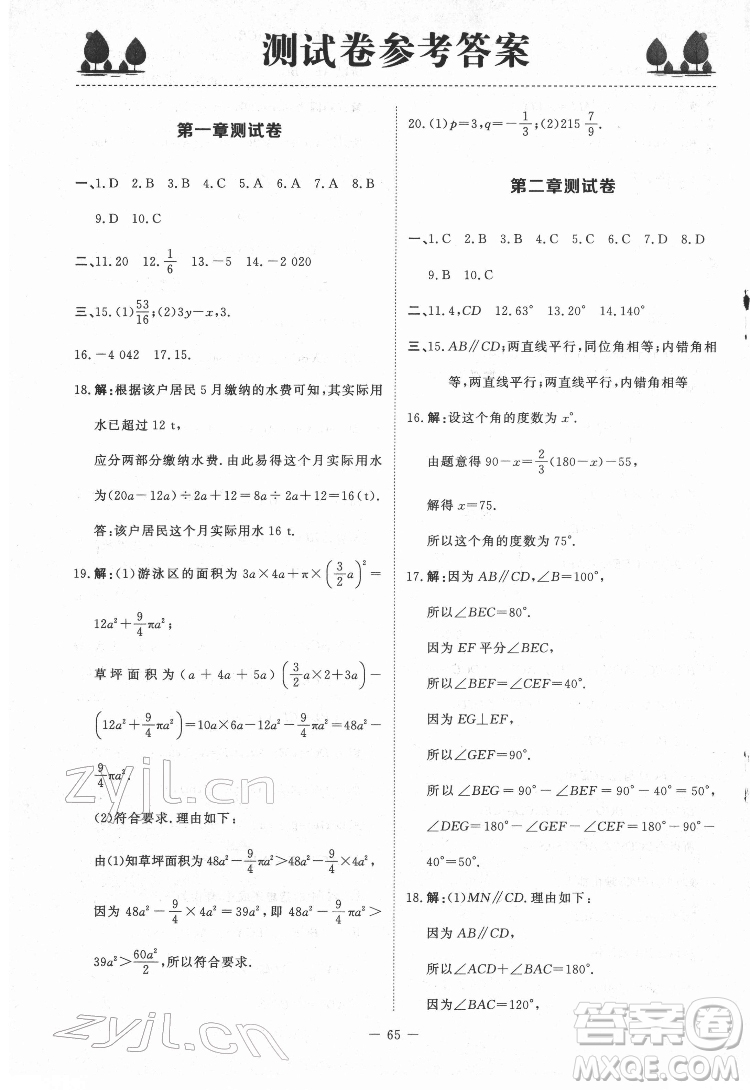 测试卷参考答案
第一章测试卷
一、1.D 2.B 3.B 4.C 5.A 6.A 7.B 8.A
9.D 10.C
二、11.20 12.1/6 13.-5 14.-2 020
三、15.(1)53/16;(2)3y-x,3.
16.-4 042 17.15.
18.解:根据该户居民5月缴纳的水费可知,其实际用
水已超过12 t,
应分两部分缴纳水费.由此易得这个月实际用水
为(20a-12a)÷2a+12=8a÷2a+12=16(t).
答:该户居民这个月实际用水16 t.
19.解:(1)游泳区的面积为3a×4a+π×(3/2 a)²=
12a²+9/4 πa²;
草坪面积为(a+4a+5a)(3/2 a×2+3a)-
(12a²+9/4 πa²)=10a×6a-12a²-9/4 πa²=48a²-
9/4 πa².
(2)符合要求.理由如下:
由(1)知草坪面积48a²-9/4 πa²>48a²-9/4×4a²,
因为48a²-9/4×4a²=39a²,即48a²-9/4 πa²>
39a²>60a²/2,所以符合要求.
20.(1)p=3,q=-1/3;(2)215 7/9.
第二章测试卷
一、1.C 2.B 3.C 4.B 5.C 6.B 7.D 8.D
9.B 10.C
二、11.4,CD 12.63° 13.20° 14.140°
三、15.AB∥CD;两直线平行,同位角相等;内错角相
等,两直线平行;两直线平行,内错角相等
16.解:设这个角的度数为x°.
由题意得90-x=2/3(180-x)-55,
解得x=75.
所以这个角的度数为75°.
17.解:因为AB∥CD,∠B=100°,
所以∠BEC=80°.
因为EF平分∠BEC,
所以∠BEF=∠CEF=40°.
因为EG⊥EF,
所以∠GEF=90°.
所以∠BEG=90°-∠BEF=90°-40°=50°,
∠DEG=180°-∠GEF-∠CEF=180°-90°-
40°=50°.
18.解:(1)MN∥CD.理由如下:
因为AB∥CD,
所以∠ACD+∠BAC=180°.
因为∠BAC=120°,
— 65 —
zyjl.cn
zyjl.cn
答案卷
MXQE.COM